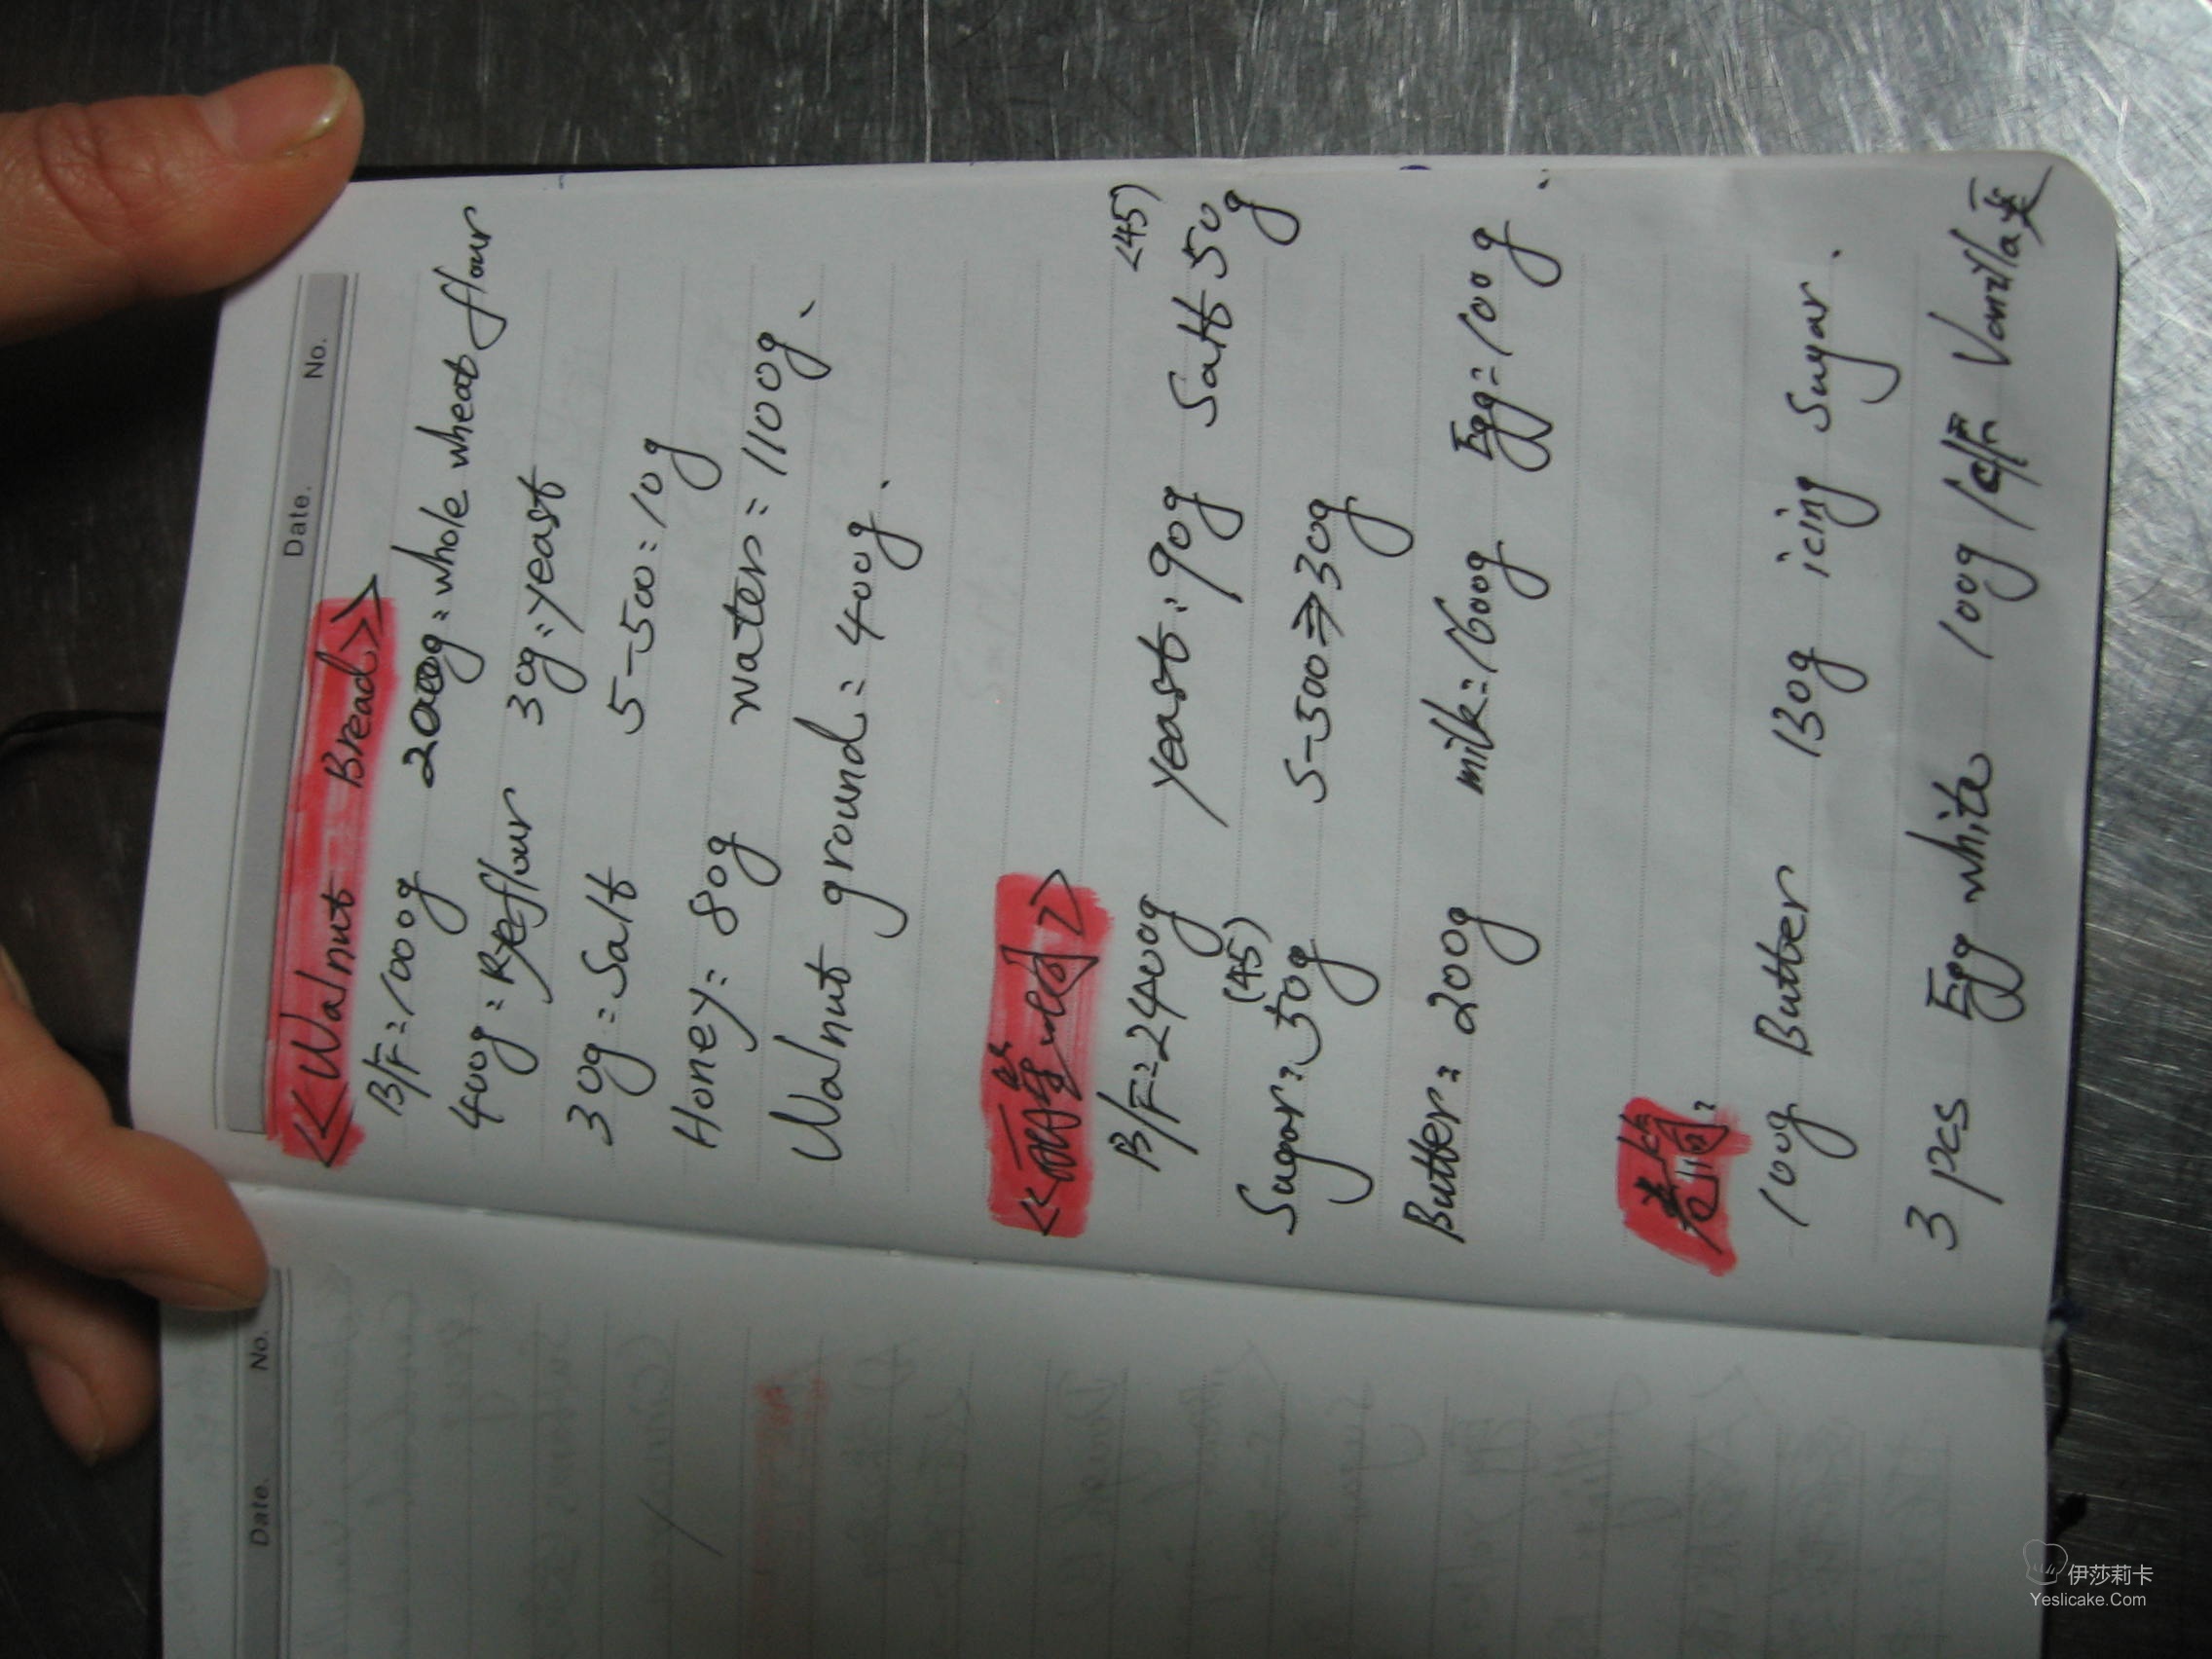 Date. No.
<<Walnut Bread>>
B/F=1000g 200g=whole wheat flour
400g=Ryeflour 30g=yeast
30g=Salt 5-500=10g
Honey=80g water=1100g.
Walnut ground=400g.
B/F=2400g yeast=90g Salt 50g <45)
Sugar=50g (45) S-500⇒30g
Butter=200g milk=1600g Egg=100g.
100g Butter 130g icing Sugar.
3 pcs Egg white 100g Vanilla
Date. No.
伊莎莉卡
Yeslicake.Com